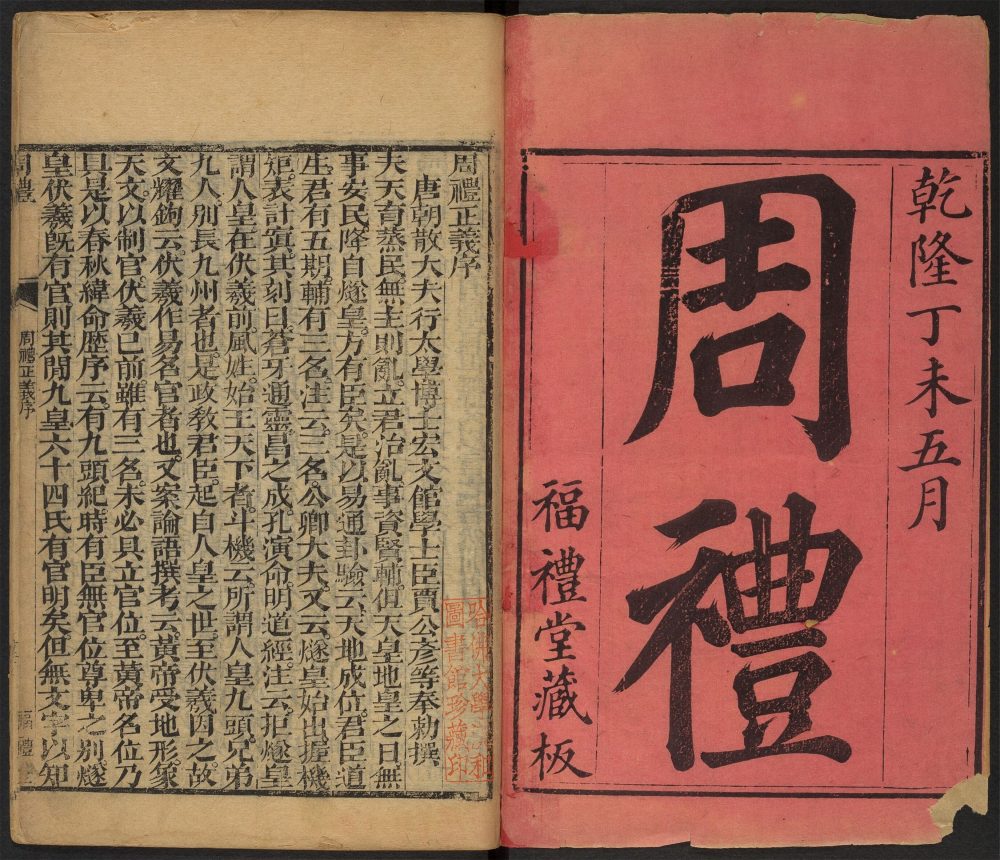 乾隆丁未五月
周禮
福禮堂藏板
周禮正義序
唐朝散大夫行太學博士宏文館學士臣賈公彥等奉勅撰
夫天育蒸民無主則亂立君治亂事資賢輔但天皇地皇之日無
事安民降自燧皇方有臣矣是以易通卦驗云天地成位君臣道
生君有五期輔有三名注云三名公卿大夫又云燧皇始出握機
矩表計寘其刻曰蒼牙通靈昌之成孔演命明道經注云拒燧皇
謂人皇在伏羲前風姓始王天下者斗機云所謂人皇九頭兄弟
九人別長九州者也是政教君臣起自人皇之世至伏羲因之故
文耀鉤云伏羲作易名官者也又案論語撰考云黃帝受地形象
天文以制官伏羲已前雖有三名未必具立官位至黃帝名位乃
具是以春秋緯命歷序云有九頭紀時有臣無官位尊卑之別燧
皇伏羲既有官則其閒九皇六十四氏有官明矣但無文字以知
周禮
周禮正義序
福禮
圖書館珍藏印